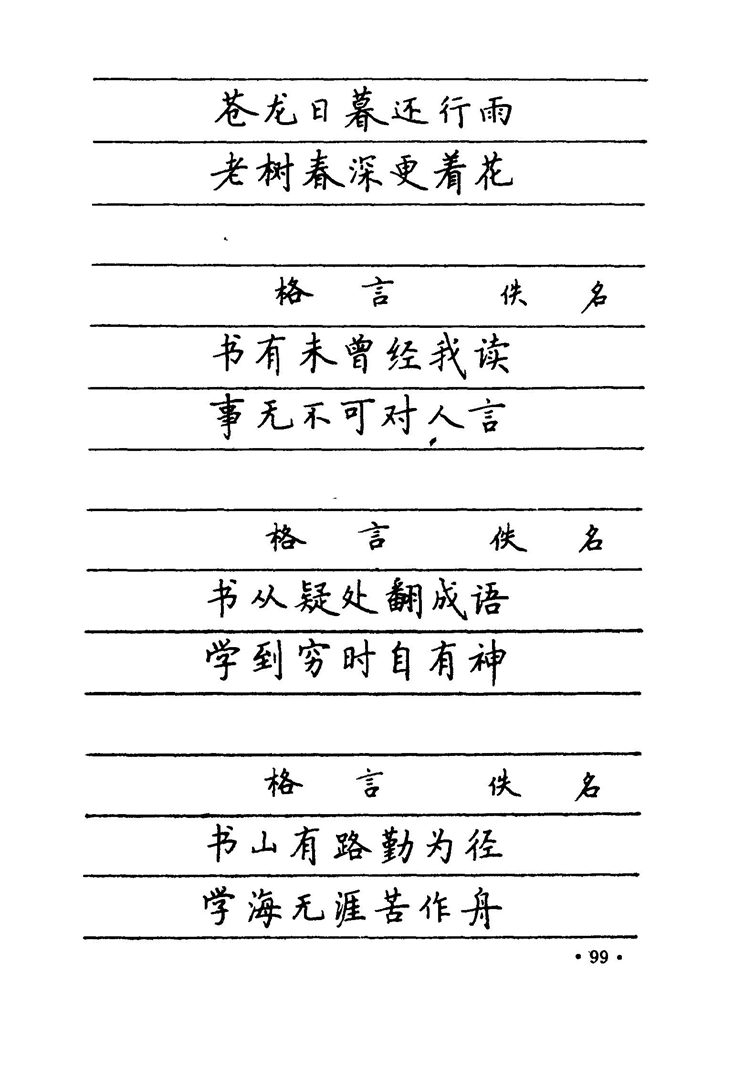 苍龙日暮还行雨
老树春深更着花
格言 佚名
书有未曾经我读
事无不可对人言
格言 佚名
书从疑处翻成语
学到穷时自有神
格言 佚名
书山有路勤为径
学海无涯苦作舟
·99·